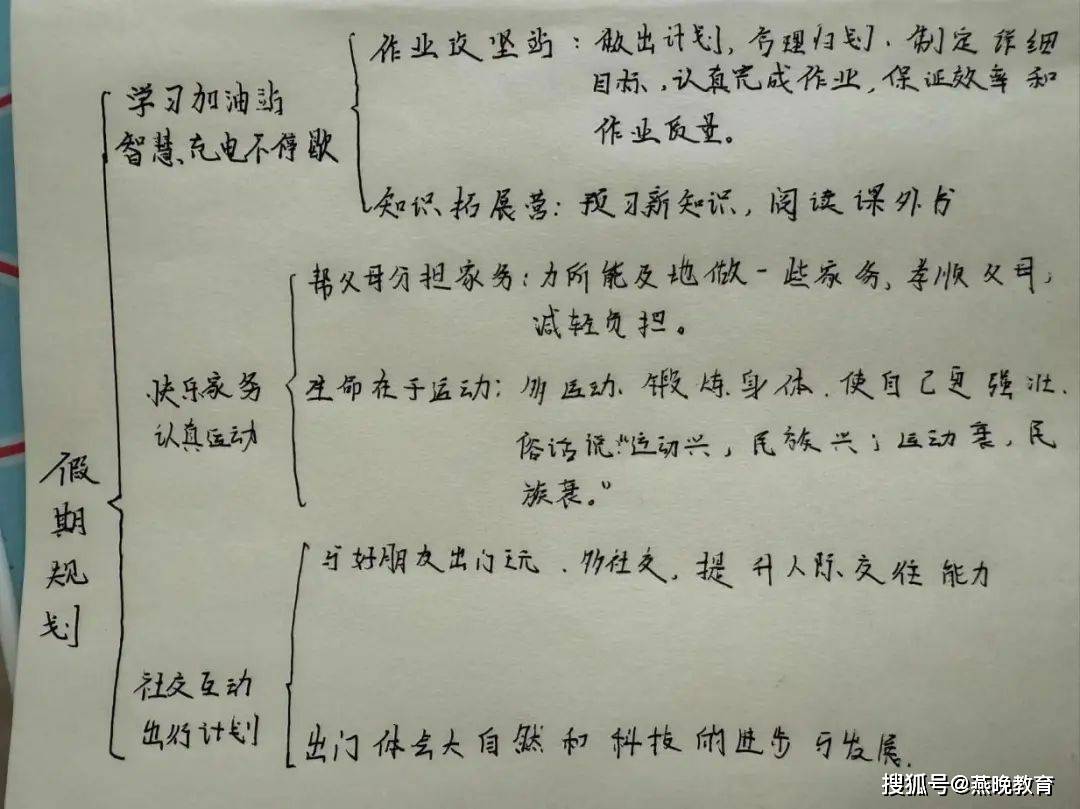 假期规划
学习加油站
智慧充电不停歇
作业攻坚站：做出计划，合理归划，制定详细
目标，认真完成作业，保证效率和
作业质量。
知识拓展营：预习新知识，阅读课外书
快乐家务
认真运动
帮父母分担家务：力所能及地做一些家务，孝顺父母，
减轻负担。
生命在于运动：多运动、锻炼身体，使自己更强壮，
俗话说："运动兴，民族兴；运动衰，民
族衰。"
社交互动
出行计划
与好朋友出门玩、多社交，提升人际交往能力
出门体会大自然和科技的进步与发展。
搜狐号@燕晚教育